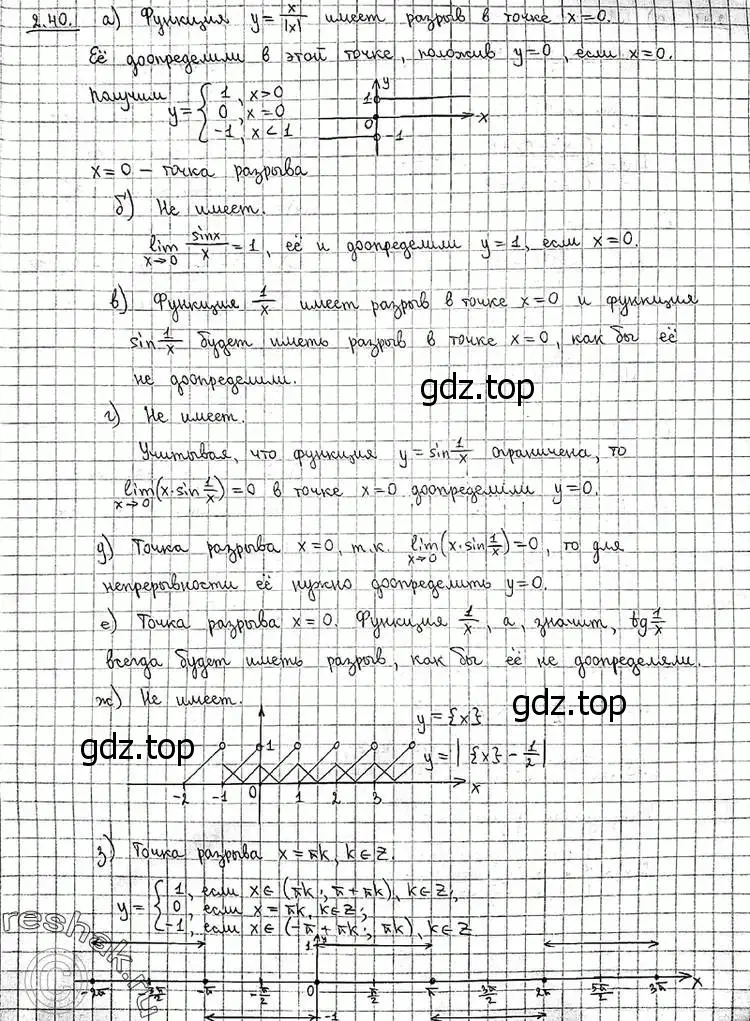 2.40. а) Функция y = x/|x| имеет разрыв в точке x=0.
Её доопределили в этой точке, положив y=0, если x=0.
Получим y = { 1, x>0
0, x=0
-1, x<1
y
1
0
x
-1
x=0 – точка разрыва
б) Не имеет.
lim x→0 sinx/x = 1, её и доопределили y=1, если x=0.
в) Функция 1/x имеет разрыв в точке x=0 и функция
sin 1/x будет иметь разрыв в точке x=0, как бы её
не доопределили.
gdz.top
г) Не имеет.
Учитывая, что функция y = sin 1/x ограничена, то
lim x→0 (x·sin 1/x) = 0 в точке x=0 доопределили y=0.
д) Точка разрыва x=0, т.к. lim x→0 (x·sin 1/x) = 0, то для
непрерывности её нужно доопределить y=0.
е) Точка разрыва x=0. Функция 1/x, а, значит, tg 1/x
всегда будет иметь разрыв, как бы её не доопределяли.
ж) Не имеет.
gdz.top
y = {x}
gdz.top
1
y = | {x} - 1/2 |
-2 -1 0 1 2 3 x
з) Точка разрыва x = πk, k∈Z.
y = { 1, если x∈(πk; π+πk), k∈Z;
0, если x=πk, k∈Z;
-1, если x∈(-π+πk; πk), k∈Z
reshak.ru
1 y
-2π -3π/2 -π -π/2 0 π/2 π 3π/2 2π 5π/2 3π x
-1